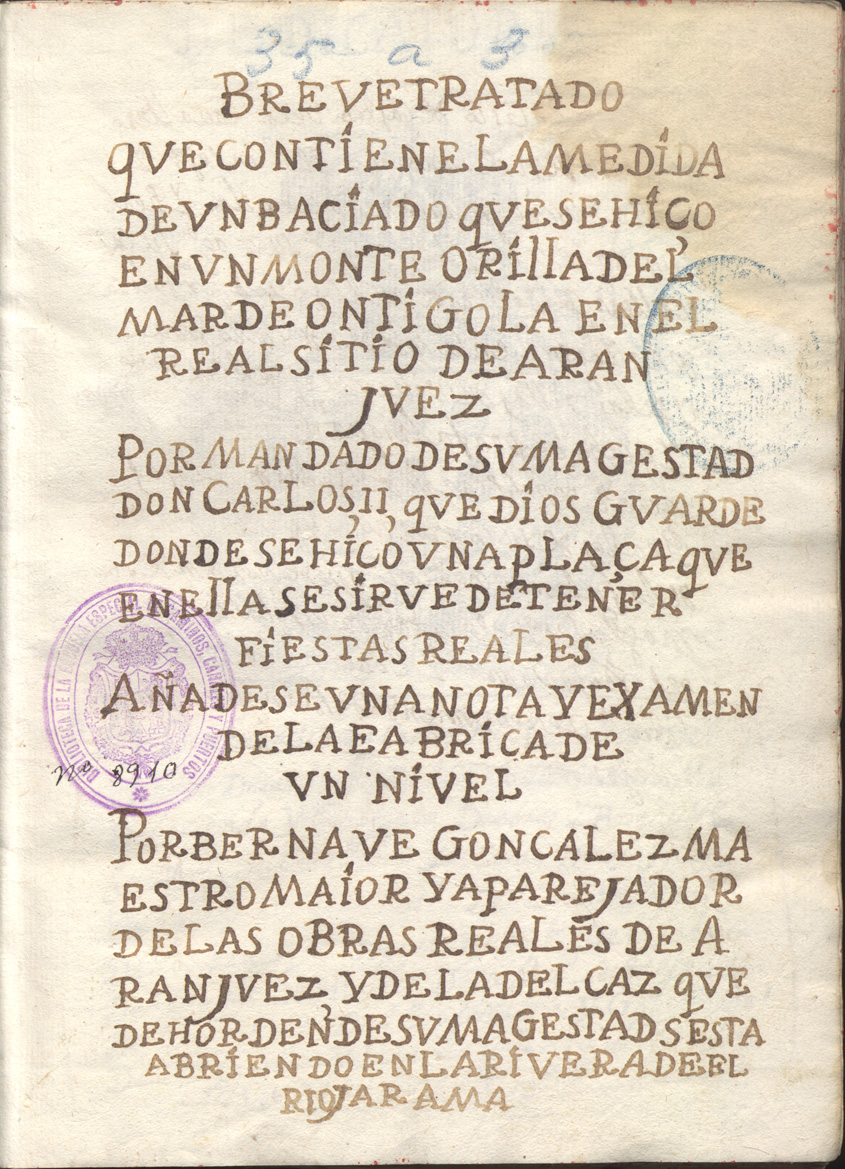 35 a 3
BREVETRATADO
qVECONTÍENELAMEDÍDA
DEVNBACÍADO qVESEHÍÇO
ENVNMONTE ORÍllADEL
MARDEONTÍGOLA EN EL
REALSÍTÍO DEARAN
JVEZ
PORMANDADODESVMAGESTAD
DON CARLOS,II, qVEDÍOS GVARDE
DONDESEHÍCOVNAPLAÇAqVE
ENEllASESÍRVEDETENER
FÍESTASREALES
AÑADESEVNANOTAYEXAMEN
DELAEABRÍCADE
VN NÍVEL
PORBERNAVE GONCALEZMA
ESTROMAÍOR YAPAREJADOR
DELAS OBRASREALES DE A
RANJVEZ, YDELADELCAZ qVE
DEHORDENDESVMAGESTADSESTA
ABRÍENDOENLARÍVERADEEL
RIOJARAMA
BIBLIOTECA DE LA ESCUELA ESPECIAL DE CAMINOS, CANALES Y PUERTOS
Nº 8910